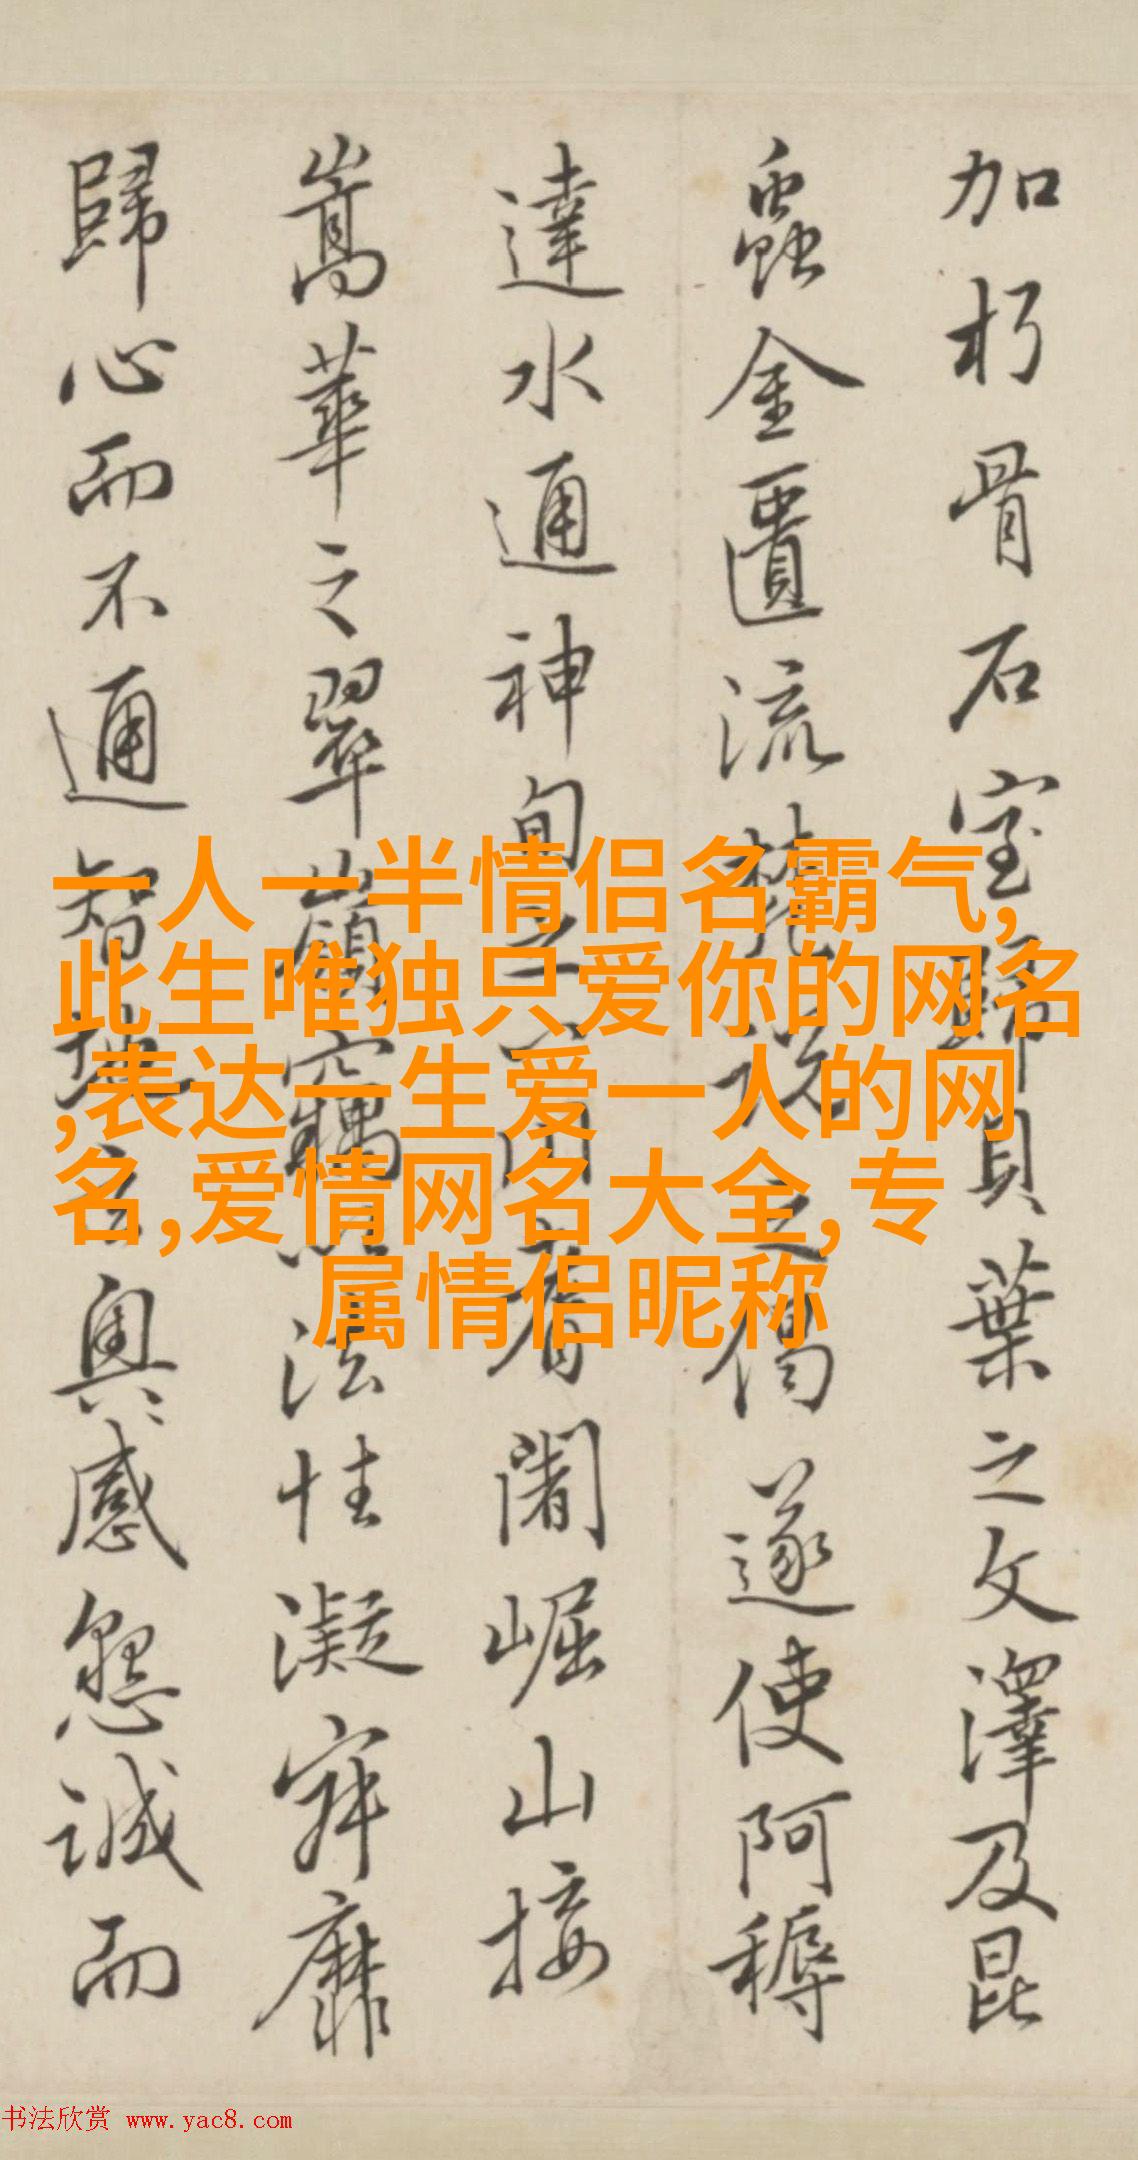 加朽骨石室歸貝葉之文澤及昆
蟲金匱流梵說之偈遂使阿耨
達水通神甸之八川耆闍崛山接
嵩華之翠嶺竊以法性凝寂靡
歸心而不通智地玄奧感懇誠而
一人一半情侣名霸气,
此生唯独只爱你的网名
,表达一生爱一人的网
名,爱情网名大全,专
属情侣昵称
书法欣赏 www.yac8.com